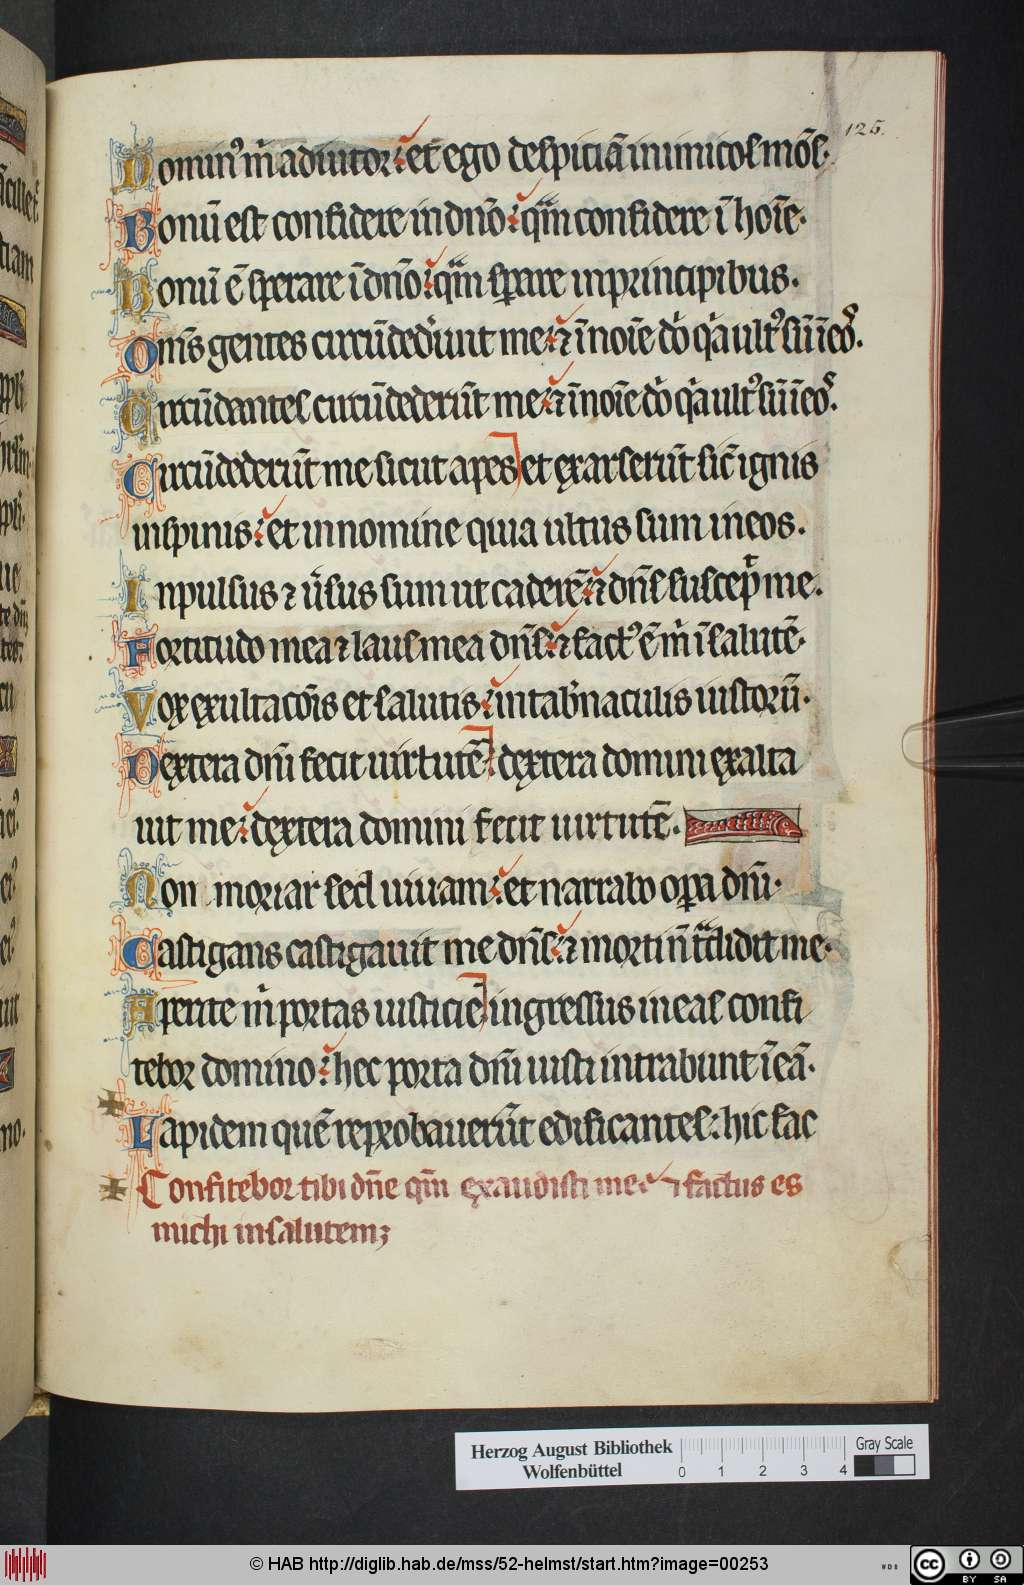 125.
Domin᷒ m̉ adiutor: et ego despiciā inimicos mōs.
Bonū est confidere in dn̄o: qm̄ confidere ī hoīe.
Bonū ē sperare ī dn̄o: qm̄ sꝑare in principibus.
Om̄s gentes circūdeder̄unt me: ⁊ ī noīe dn̄i q̇a ult᷒ sū ī eos.
Circūdantes circūdederūt me: ⁊ ī noīe dn̄i q̇a ult᷒ sū ī eos.
Circūdederūt me sicut apes et exarserūt sic̄ ignis
in spinis: et in nomine quia ultus sum in eos.
Inpulsus ⁊ ū̉sus sum ut caderē: ⁊ dn̄s suscep̄t me.
Fortitudo mea ⁊ laus mea dn̄s: ⁊ fact᷒ ē m̉ ī salutē.
Vox exultacōis et salutis: in tab̄naculis iustorū.
Dextera dn̄i fecit uirtutē: dextera domini exalta
uit me: dextera domini fecit uirtutē.
Non moriar sed uiuam: et narrabo oꝑa dn̄i.
Castigans castigauit me dn̄s: ⁊ morti n̄ tͣdidit me.
Aperite m̉ portas iusticie ingressus in eas confi
tebor domino: hec porta dn̄i iusti intrabunt ī eā.
Lapidem quē reprobauerūt edificantes: hic fac
Confitebor tibi dn̄e qm̄ exaudisti me: ⁊ factus es
michi in salutem;
Herzog August Bibliothek
Wolfenbüttel
Gray Scale
0 1 2 3 4
© HAB http://diglib.hab.de/mss/52-helmst/start.htm?image=00253
WDB
cc BY SA